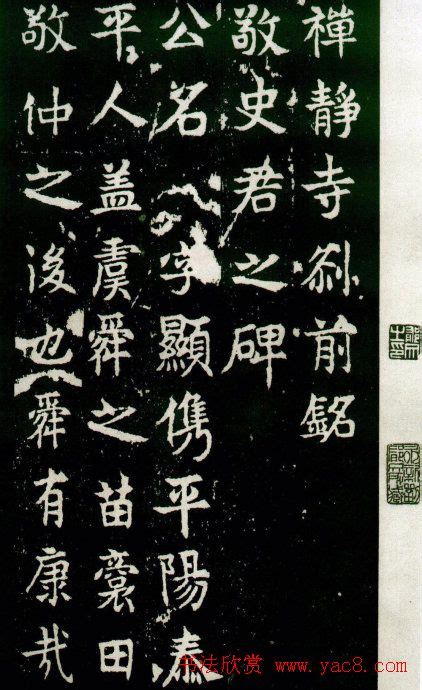 禪靜寺刹前銘
敬史君之碑
公名字顯儁平陽泰
平人盖虞舜之苗裔田
敬仲之後也舜有康哉
书法欣赏 www.yac8.com